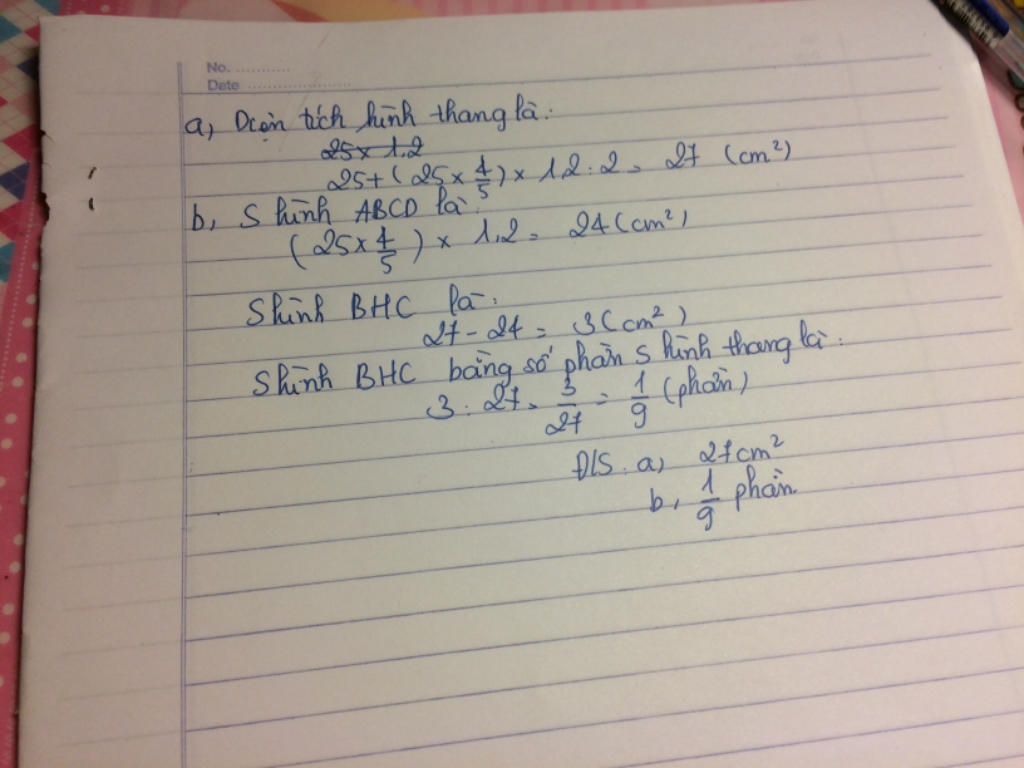 No. ...........
Date .....................
a, Diện tích hình thang là:
25 x 1,2
25+(25 x 4/5) x 1,2 : 2 = 27 (cm²)
b, S hình ABCD là:
(25 x 4/5) x 1,2 = 24 (cm²)
S hình BHC là:
27 - 24 = 3 (cm²)
S hình BHC bằng số phần S hình thang là:
3 : 27 = 3/27 = 1/9 (phần)
Đ/S: a, 27cm²
b, 1/9 phần